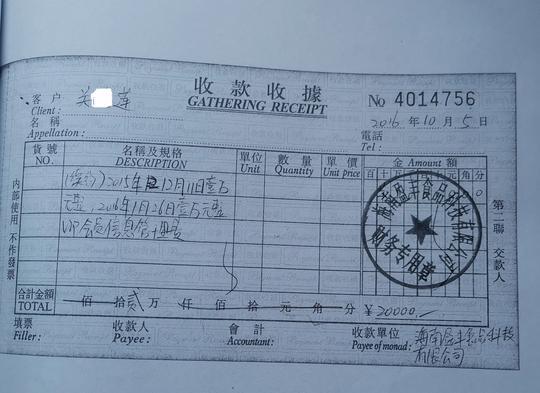 收款收據
GATHERING RECEIPT
No 4014756
2016年10月5日
客户
Client :
名稱
Appellation :
電話
Tel :
貨號
NO.
名稱及規格
DESCRIPTION
單位
Unit
數量
Quantity
單價
Unit price
金 Amount 額
百十万千百十元角分
2015年12月11日壹万
元整,2016年1月26日壹万元整
VIP会员信息管
财务专用章
合計金額
TOTAL
佰 拾贰万 仟 佰 拾 元 角 分
¥20000.-
填票
Filler :
收款人
Payee :
會計
Accountant :
收款單位
Payee of monad :
海南盈丰食品科技
有限公司
内部使用 不作發票
第二聯 交款人